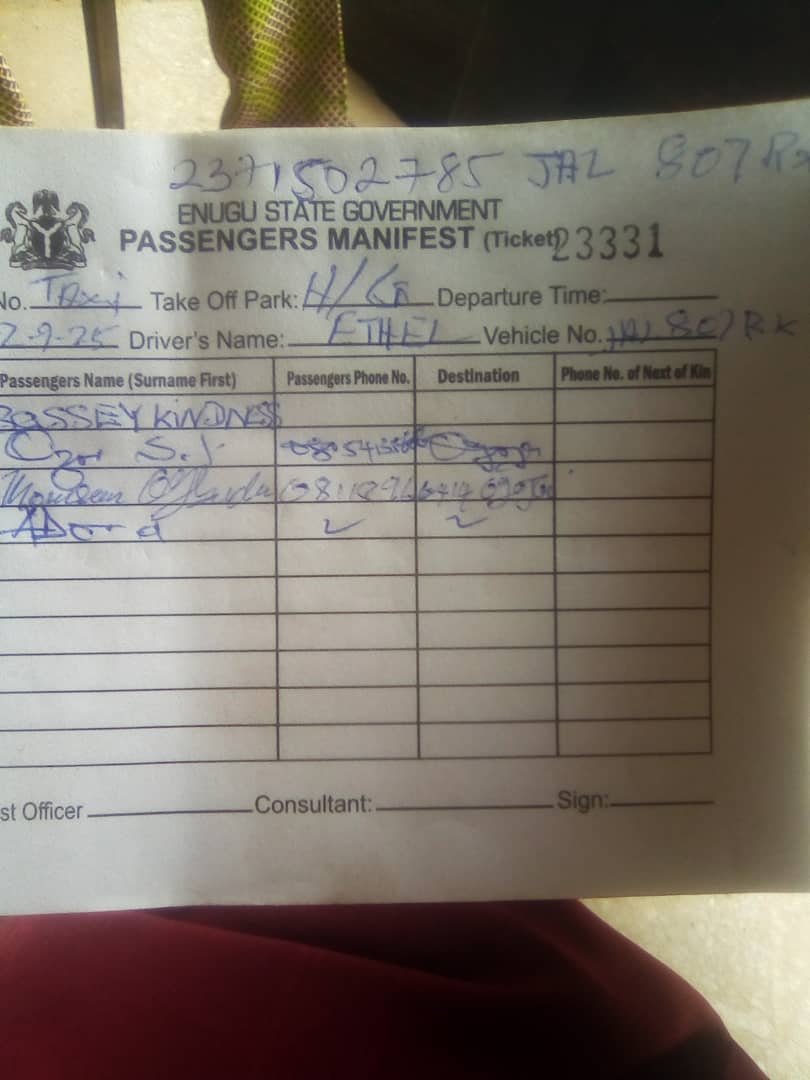 2371502785 JAL 807 RK
ENUGU STATE GOVERNMENT
PASSENGERS MANIFEST (Ticket) 23331
No. Taxi Take Off Park: Departure Time:
2-9-25 Driver's Name: ETHEL Vehicle No. JAL 807 RK
Passengers Name (Surname First) Passengers Phone No. Destination Phone No. of Next of Kin
BASSEY KINDNESS
S.J.
st Officer Consultant: Sign: